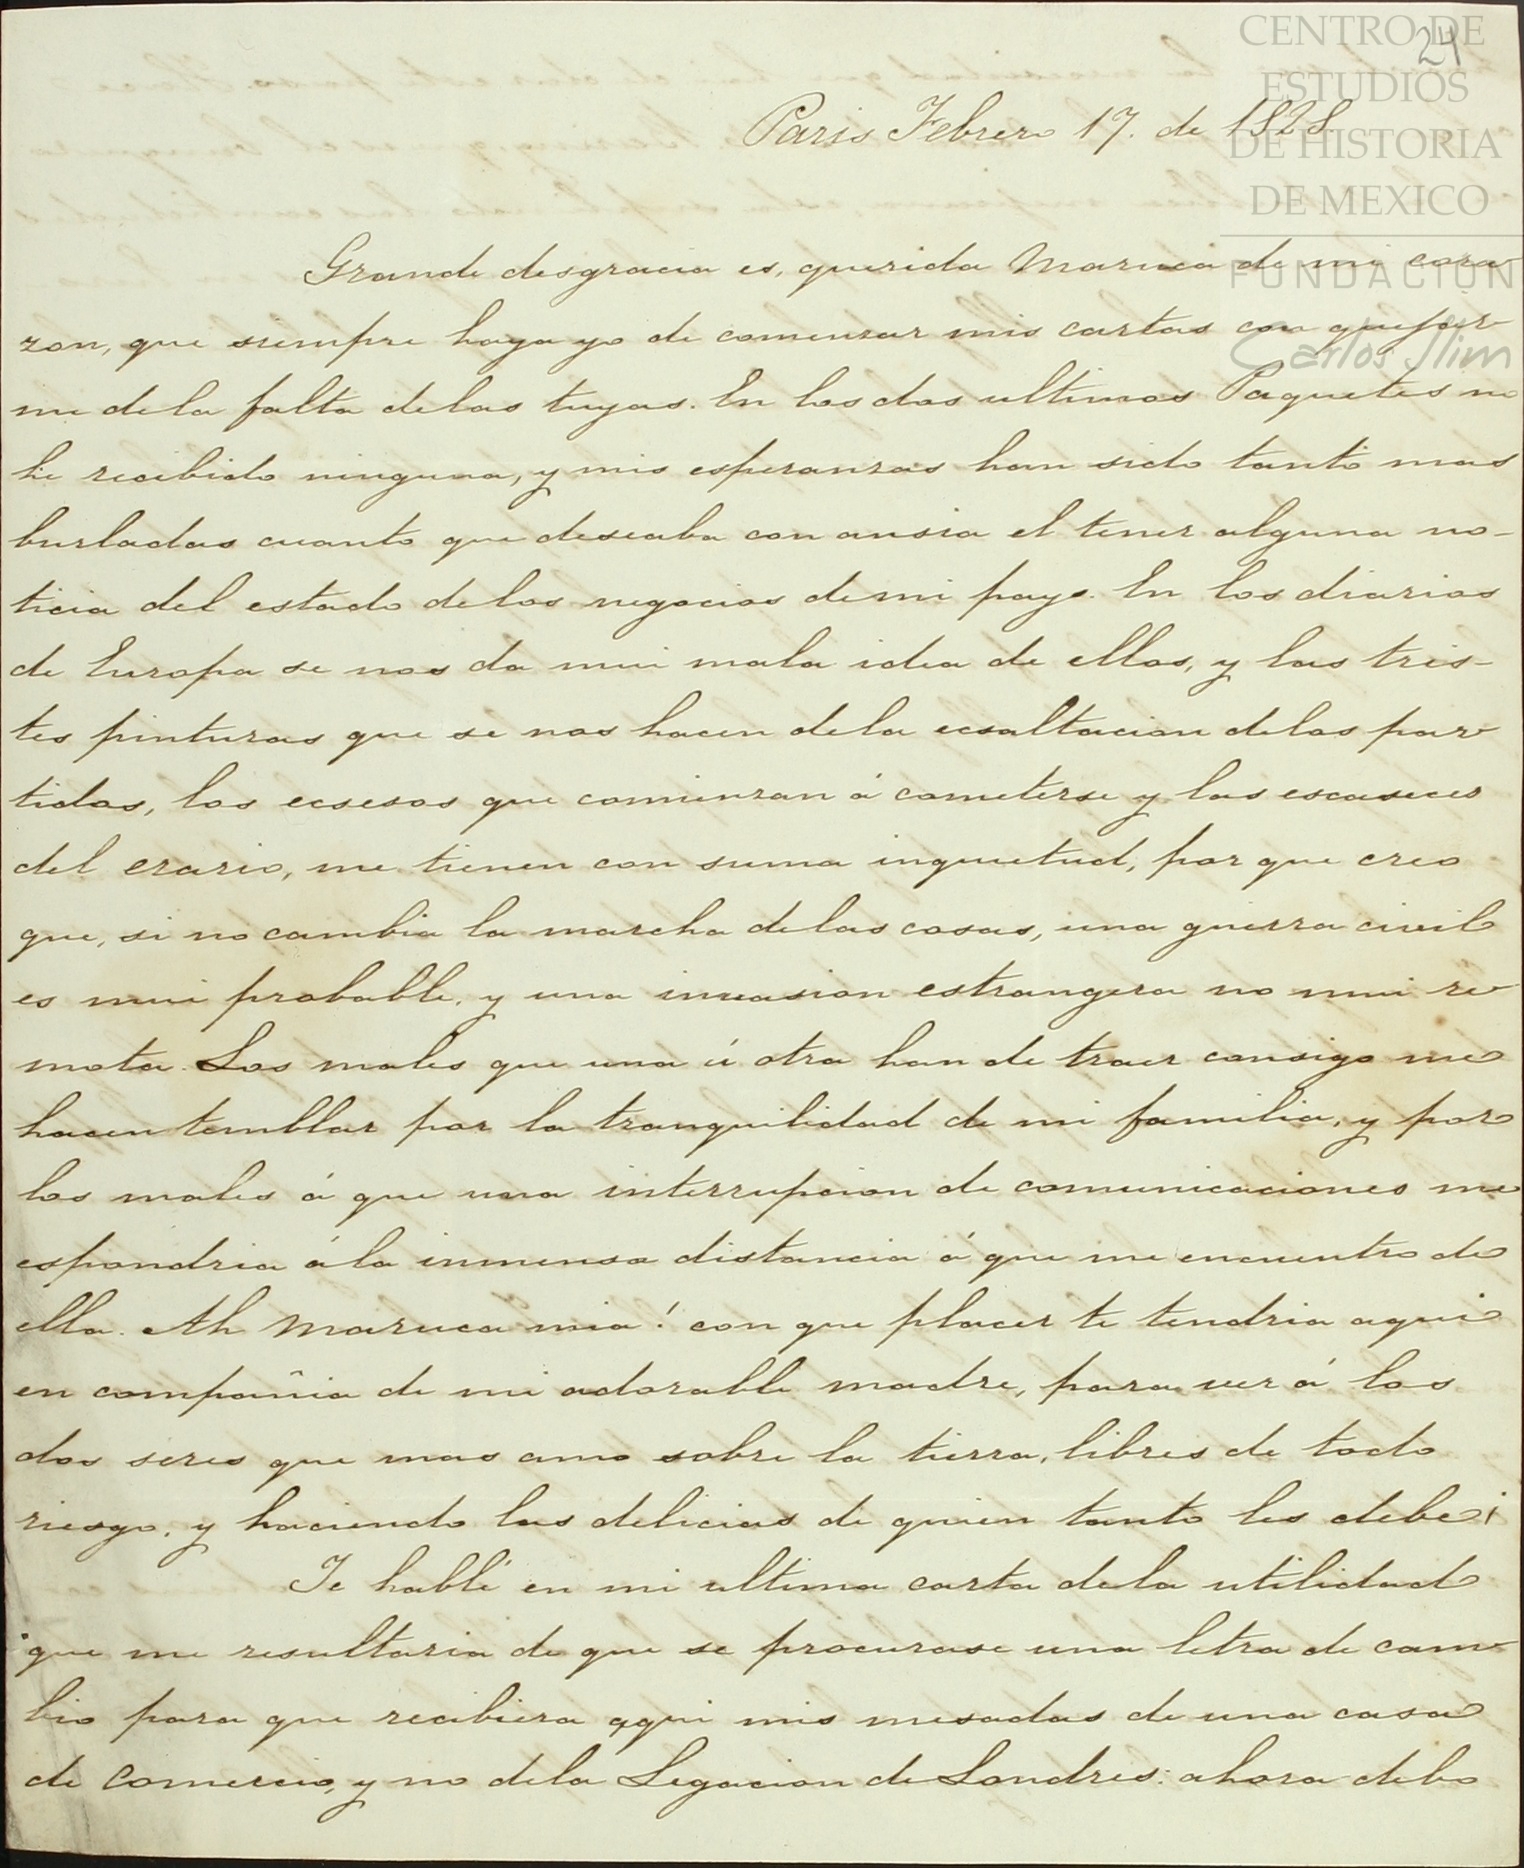 CENTRO DE
24
ESTUDIOS
DE HISTORIA
DE MEXICO
FUNDACION
Carlos Slim
Paris Febrero 17. de 1828
Grande desgracia es, querida Maruca de mi cora-
zon, que siempre haya yo de comenzar mis cartas con quejar-
me de la falta delas tuyas. En los dos ultimos Paquetes no
he recibido ninguna, y mis esperanzas han sido tanto mas
burladas cuanto que deseaba con ansia el tener alguna no-
ticia del estado delos negocios demi pays. En los diarios
de Europa se nos da mui mala idea de ellos, y las tris-
tes pinturas que se nos hacen dela ecsaltacion delos par-
tidos, los ecsesos que comienzan á cometerse y las escaseces
del erario, me tienen con suma inquietud, por que creo
que, si no cambia la marcha delas cosas, una guerra civil
es mui probable, y una invasion estrangera no mui re-
mota. Los males que una ú otra han de traer consigo me
hacen temblar por la tranquilidad de mi familia, y por
los males á que una interrupcion de comunicaciones me
espondria á la inmensa distancia á que me encuentro de
ella. Ah Maruca mia! con que placer te tendria aqui
en compañia de mi adorable madre, para ver á los
dos seres que mas amo sobre la tierra, libres de todo
riesgo, y haciendo las delicias de quien tanto les debe¡
Te hablé en mi ultima carta dela utilidad
que me resultaria de que se procurase una letra de cam-
bio para que recibiera aqui mis mesadas de una casa
de comercio, y no dela Legacion de Londres: ahora debo